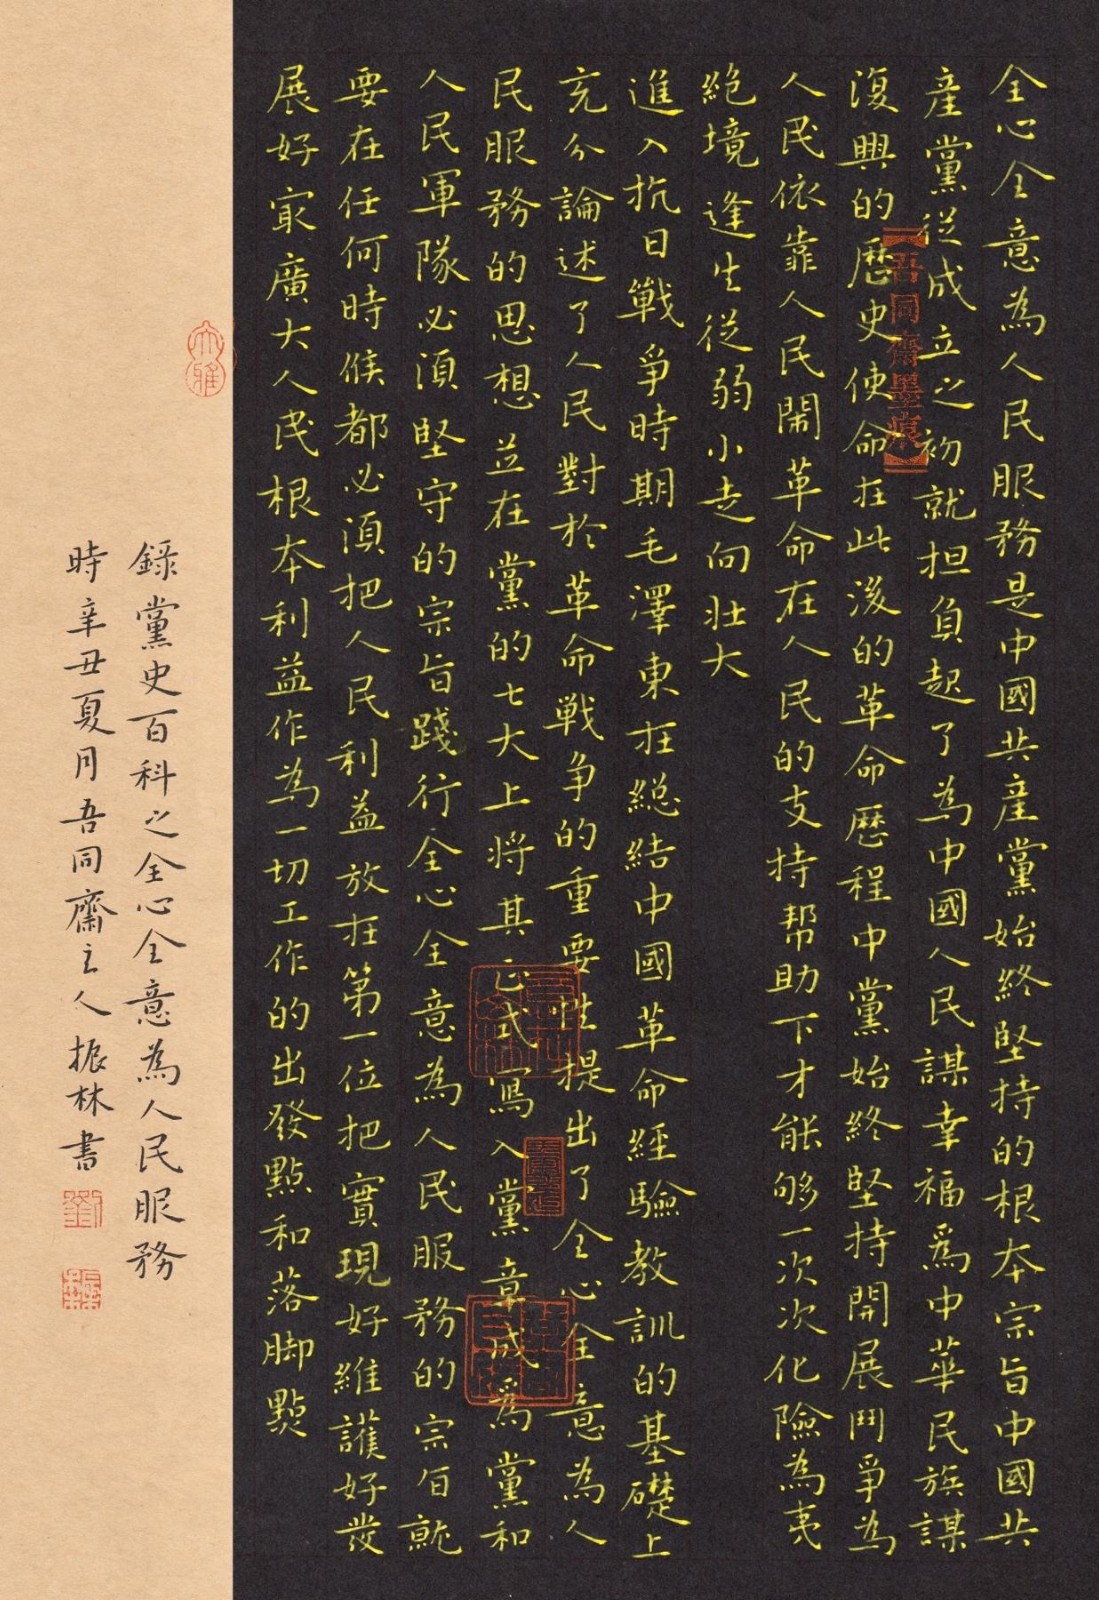 全心全意為人民服務是中國共産黨始終堅持的根本宗旨中國共
産黨從成立之初就担負起了為中國人民謀幸福爲中華民族謀
復興的歷史使命在此後的革命歷程中黨始終堅持開展鬥爭為
人民依靠人民鬧革命在人民的支持帮助下才能够一次次化險為夷
絶境逢生從弱小走向壮大
進入抗日戰爭時期毛澤東在総結中國革命經驗教訓的基礎上
充分論述了人民對於革命戰争的重要性提出了全心全意為人
民服務的思想並在黨的七大上將其正式寫入黨章成爲黨和
人民軍隊必須堅守的宗旨踐行全心全意為人民服務的宗旨就
要在任何時候都必須把人民利益放在第一位把實現好維護好發
展好最廣大人民根本利益作為一切工作的出發點和落脚點
錄黨史百科之全心全意為人民服務
時辛丑夏月吾同齋主人振林書
大雅
吾同齋墨痕
劉